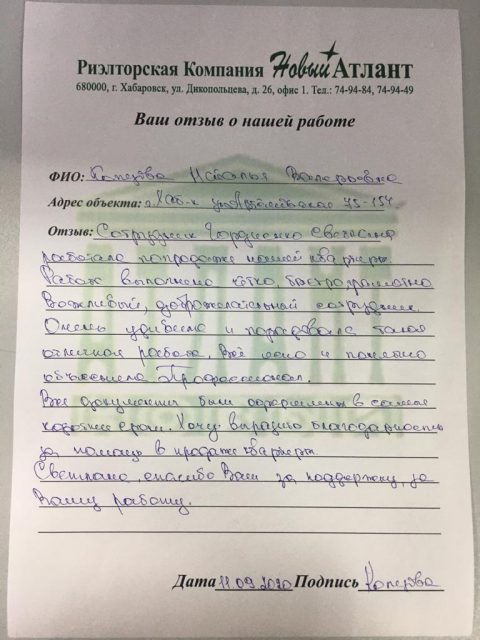 Риэлторская Компания Новый Атлант
680000, г. Хабаровск, ул. Дикопольцева, д. 26, офис 1. Тел.: 74-94-84, 74-94-49
Ваш отзыв о нашей работе
ФИО: Наталья Валерьевна
Адрес объекта: г. Хаб-к 75-154
Отзыв: Сотрудник Гордиенко Светлана
работала по продаже нашей квартиры.
Работа выполнена чётко, быстро, грамотно
Вежливый, доброжелательный сотрудник.
Очень удивила и порадовала такая
отличная работа. Всё ясно и понятно
объяснила. Профессионал.
Все документы были оформлены в самые
короткие сроки. Хочу выразить благодарность
за помощь в продаже квартиры.
Светлана, спасибо Вам за поддержку, за
Вашу работу.
Дата 11.09.2020 Подпись